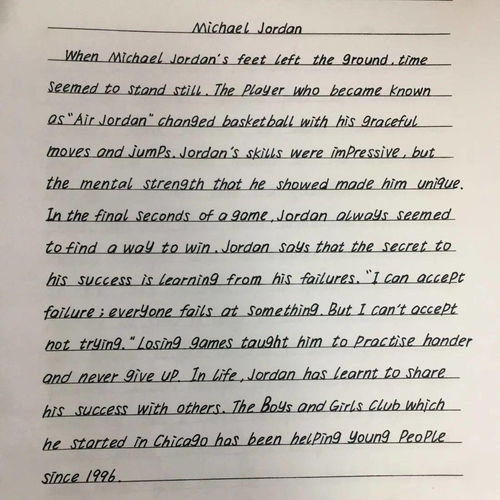 Michael Jordan
When Michael Jordan's feet left the ground, time
seemed to stand still. The Player who became known
as "Air Jordan" changed basketball with his graceful
moves and jumps. Jordan's skills were impressive, but
the mental strength that he showed made him unique.
In the final seconds of a game, Jordan always seemed
to find a way to win. Jordan says that the secret to
his success is learning from his failures. "I can accept
failure; everyone fails at something. But I can't accept
not trying." Losing games taught him to Practise hander
and never give up. In life, Jordan has learnt to share
his success with others. The Boys and Girls Club which
he started in Chicago has been helping young people
since 1996.